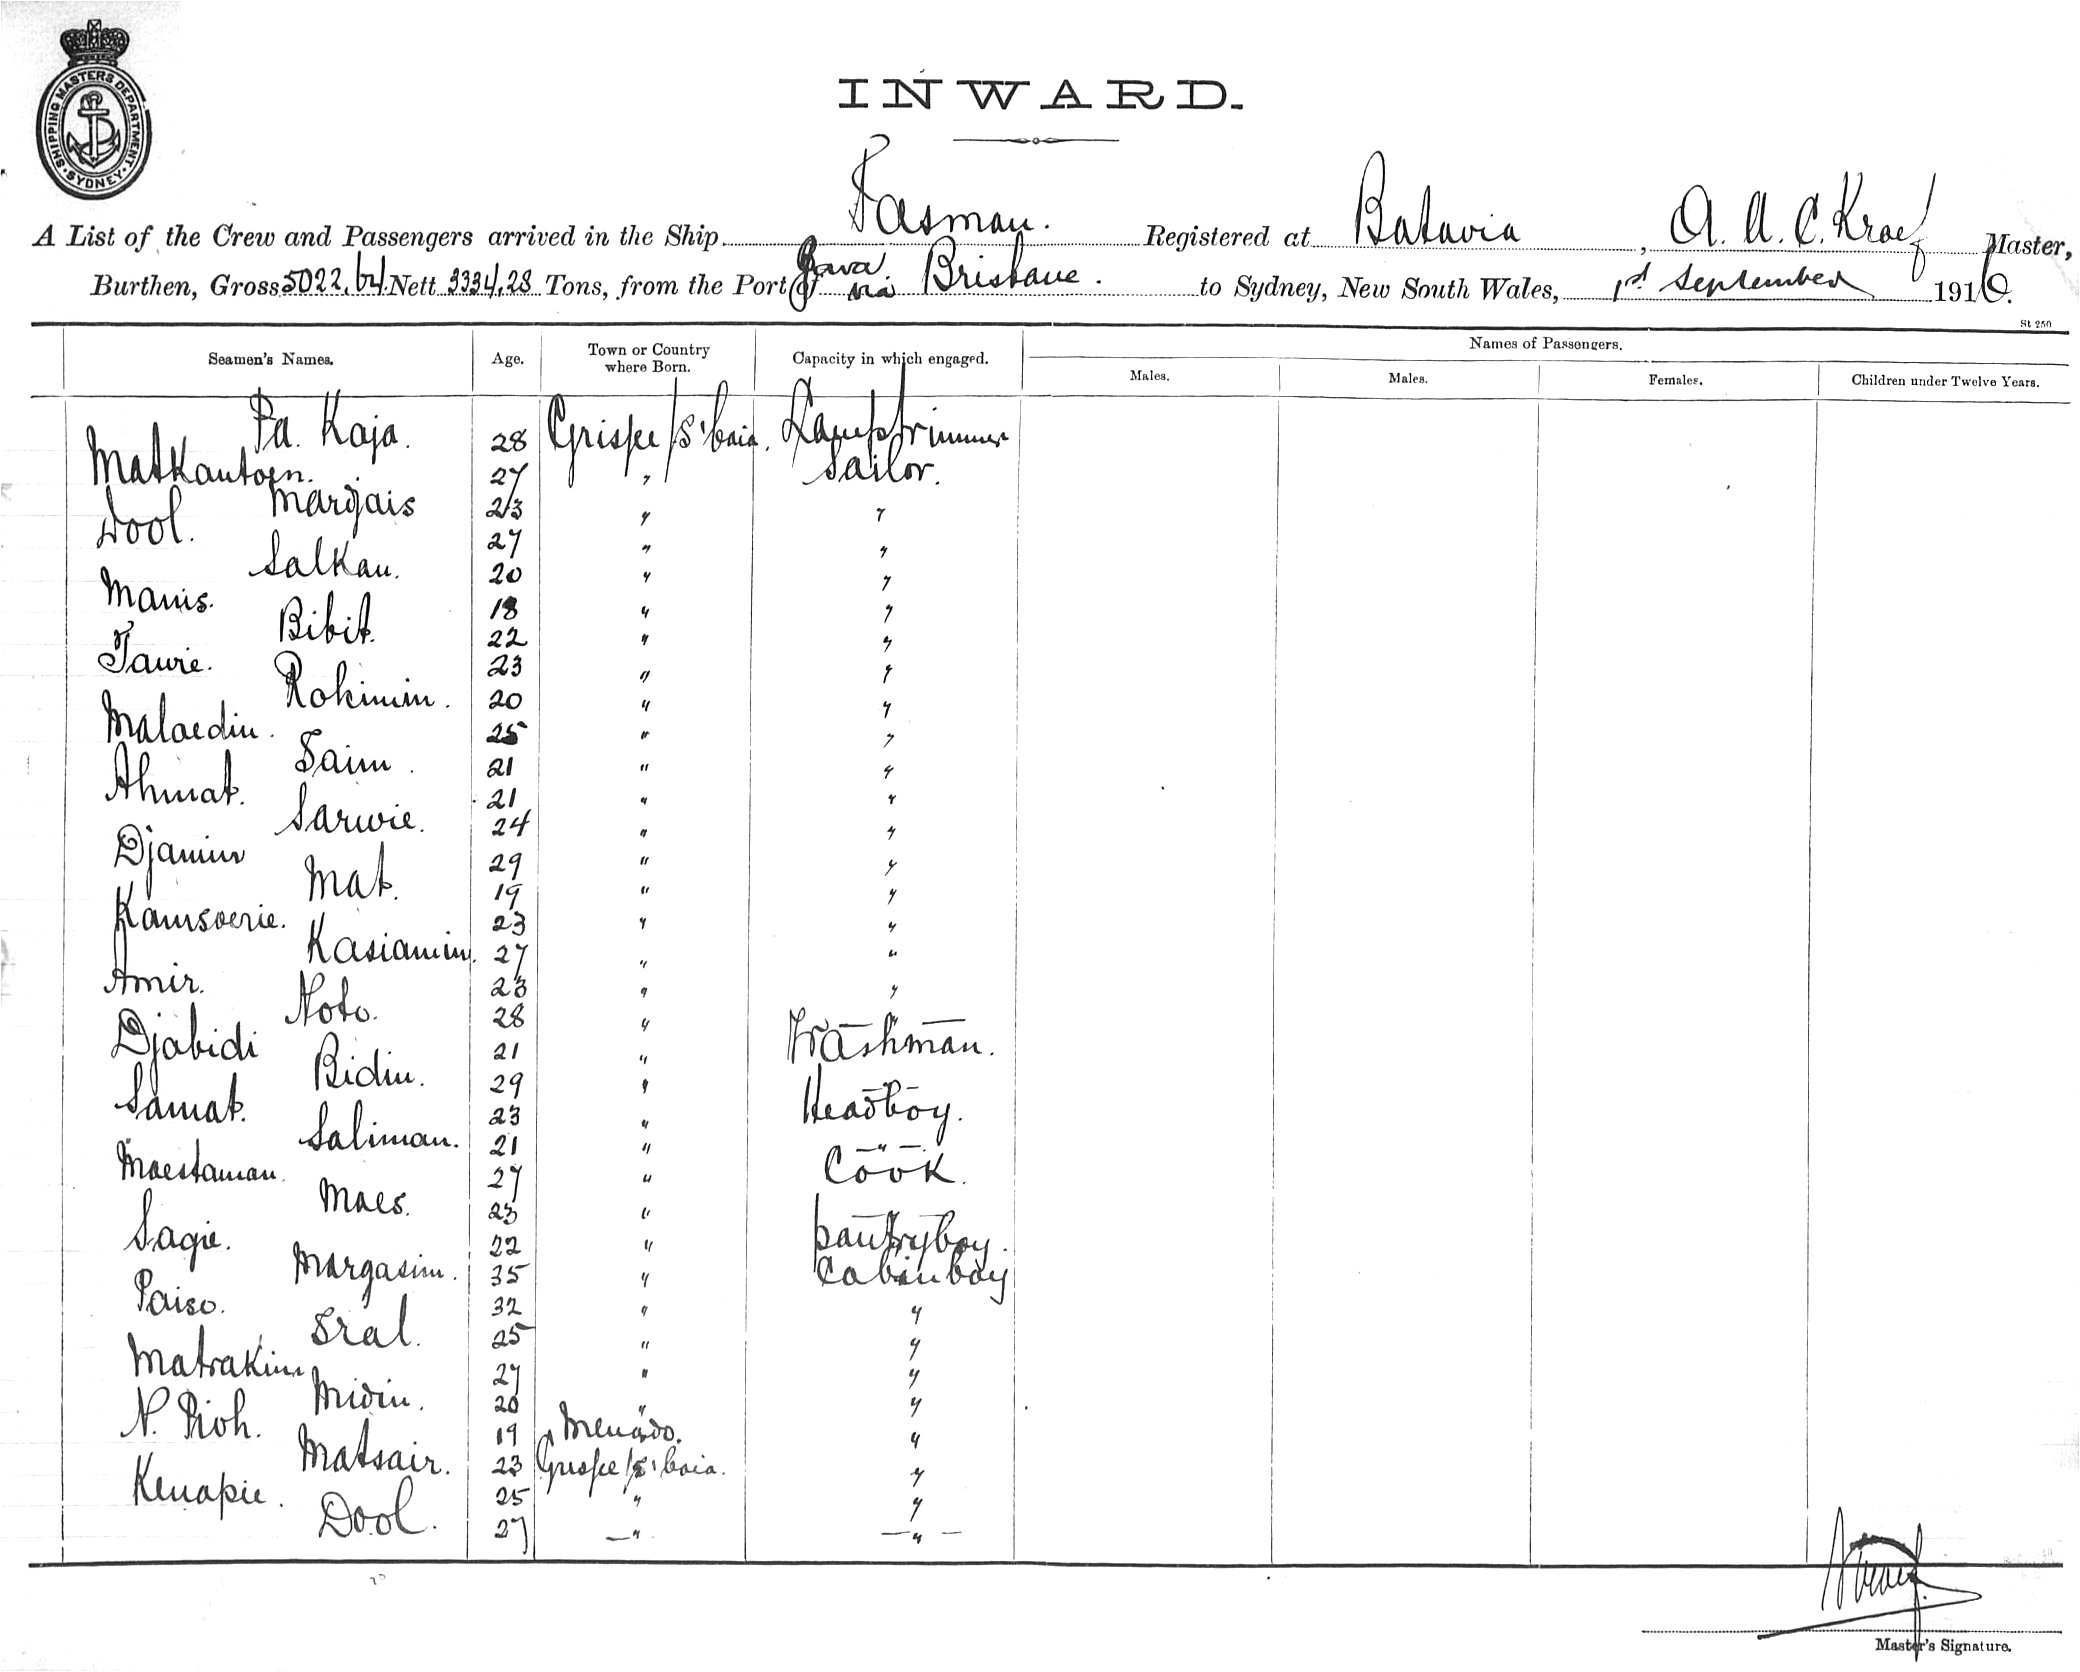 SHIPPING MASTERS DEPARTMENT.
SYDNEY
INWARD.
A List of the Crew and Passengers arrived in the Ship Tasman. Registered at Batavia, A. A. C. Kraef Master,
Burthen, Gross 5022,64 Nett 3334,28 Tons, from the Port of Java via Brisbane. to Sydney, New South Wales, 1st September 1916.
St 250
Seamen's Names. Age. Town or Country where Born. Capacity in which engaged. Names of Passengers.
Males. Males. Females. Children under Twelve Years.
Pa. Kaja. 28 Grissee/S'baia. Lamptrimmer
Matkantoen. 27 " Sailor.
Mardjais 23 " "
Dool. 27 " "
Salkan. 20 " "
Manis. 18 " "
Bibit. 22 " "
Tawie. 23 " "
Rokimin. 20 " "
Malaedin. 25 " "
Saim. 21 " "
Ahmat. 21 " "
Sarwie. 24 " "
Djamin 29 " "
Mat. 19 " "
Kamsoerie. 23 " "
Kasiamin. 27 " "
Amir. 23 " "
Noto. 28 " "
Djabidi 21 " Washman.
Bidin. 29 " — " —
Samat. 23 " Headboy.
Saliman. 21 " — " —
Maestaman. 27 " Cook.
Maes. 23 " — " —
Sagie. 22 " pantryboy.
Margasim. 35 " Cabinboy
Paiso. 32 " "
Sral. 25 " "
Matrakim 27 " "
Midin. 20 " "
N. Pioh. 19 Menado. "
Matsair. 23 Grissee/S'baia. "
Kenapie. 25 " "
Dool. 27 — " — " —
Master's Signature.